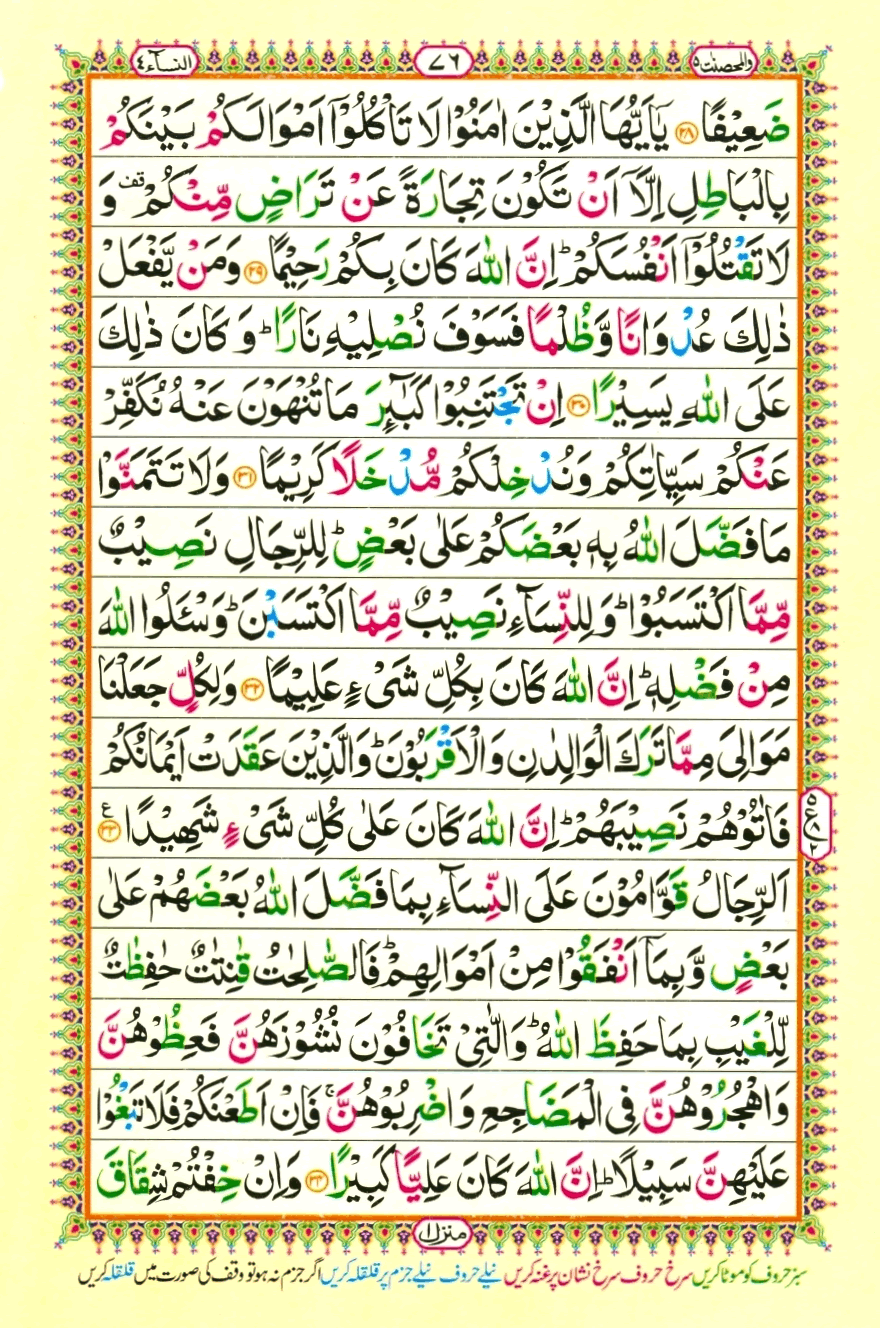 والمحصنٰت ٥
٧٦
النساء ٤
ضَعِيْفًا ﴿٢٨﴾ يٰۤاَيُّهَا الَّذِيْنَ اٰمَنُوْا لَا تَاْكُلُوْۤا اَمْوَالَكُمْ بَيْنَكُمْ
بِالْبَاطِلِ اِلَّاۤ اَنْ تَكُوْنَ تِجَارَةً عَنْ تَرَاضٍ مِّنْكُمْ ۫ وَ
لَا تَقْتُلُوْۤا اَنْفُسَكُمْ ؕ اِنَّ اللّٰهَ كَانَ بِكُمْ رَحِيْمًا ﴿٢٩﴾ وَمَنْ يَّفْعَلْ
ذٰلِكَ عُدْوَانًا وَّظُلْمًا فَسَوْفَ نُصْلِيْهِ نَارًا ؕ وَكَانَ ذٰلِكَ
عَلَى اللّٰهِ يَسِيْرًا ﴿٣٠﴾ اِنْ تَجْتَنِبُوْا كَبَآئِرَ مَا تُنْهَوْنَ عَنْهُ نُكَفِّرْ
عَنْكُمْ سَيِّاٰتِكُمْ وَنُدْخِلْكُمْ مُّدْخَلًا كَرِيْمًا ﴿٣١﴾ وَلَا تَتَمَنَّوْا
مَا فَضَّلَ اللّٰهُ بِهٖ بَعْضَكُمْ عَلٰى بَعْضٍ ؕ لِلرِّجَالِ نَصِيْبٌ
مِّمَّا اكْتَسَبُوْا ؕ وَلِلنِّسَآءِ نَصِيْبٌ مِّمَّا اكْتَسَبْنَ ؕ وَسْـَٔلُوا اللّٰهَ
مِنْ فَضْلِهٖ ؕ اِنَّ اللّٰهَ كَانَ بِكُلِّ شَىْءٍ عَلِيْمًا ﴿٣٢﴾ وَلِكُلٍّ جَعَلْنَا
مَوَالِىَ مِمَّا تَرَكَ الْوَالِدٰنِ وَالْاَقْرَبُوْنَ ؕ وَالَّذِيْنَ عَقَدَتْ اَيْمَانُكُمْ
فَاٰتُوْهُمْ نَصِيْبَهُمْ ؕ اِنَّ اللّٰهَ كَانَ عَلٰى كُلِّ شَىْءٍ شَهِيْدًا ﴿٣٣﴾ ع
اَلرِّجَالُ قَوَّامُوْنَ عَلَى النِّسَآءِ بِمَا فَضَّلَ اللّٰهُ بَعْضَهُمْ عَلٰى
بَعْضٍ وَّبِمَاۤ اَنْفَقُوْا مِنْ اَمْوَالِهِمْ ؕ فَالصّٰلِحٰتُ قٰنِتٰتٌ حٰفِظٰتٌ
لِّلْغَيْبِ بِمَا حَفِظَ اللّٰهُ ؕ وَالّٰتِىْ تَخَافُوْنَ نُشُوْزَهُنَّ فَعِظُوْهُنَّ
وَاهْجُرُوْهُنَّ فِى الْمَضَاجِعِ وَاضْرِبُوْهُنَّ ۚ فَاِنْ اَطَعْنَكُمْ فَلَا تَبْغُوْا
عَلَيْهِنَّ سَبِيْلًا ؕ اِنَّ اللّٰهَ كَانَ عَلِيًّا كَبِيْرًا ﴿٣٤﴾ وَاِنْ خِفْتُمْ شِقَاقَ
منزل ١
سبز حروف کو موٹا کریں سرخ حروف سرخ نشان پر غنہ کریں نیلے حروف نیلے جزم پر قلقلہ کریں اگر جزم نہ ہو تو وقف کی صورت میں قلقلہ کریں